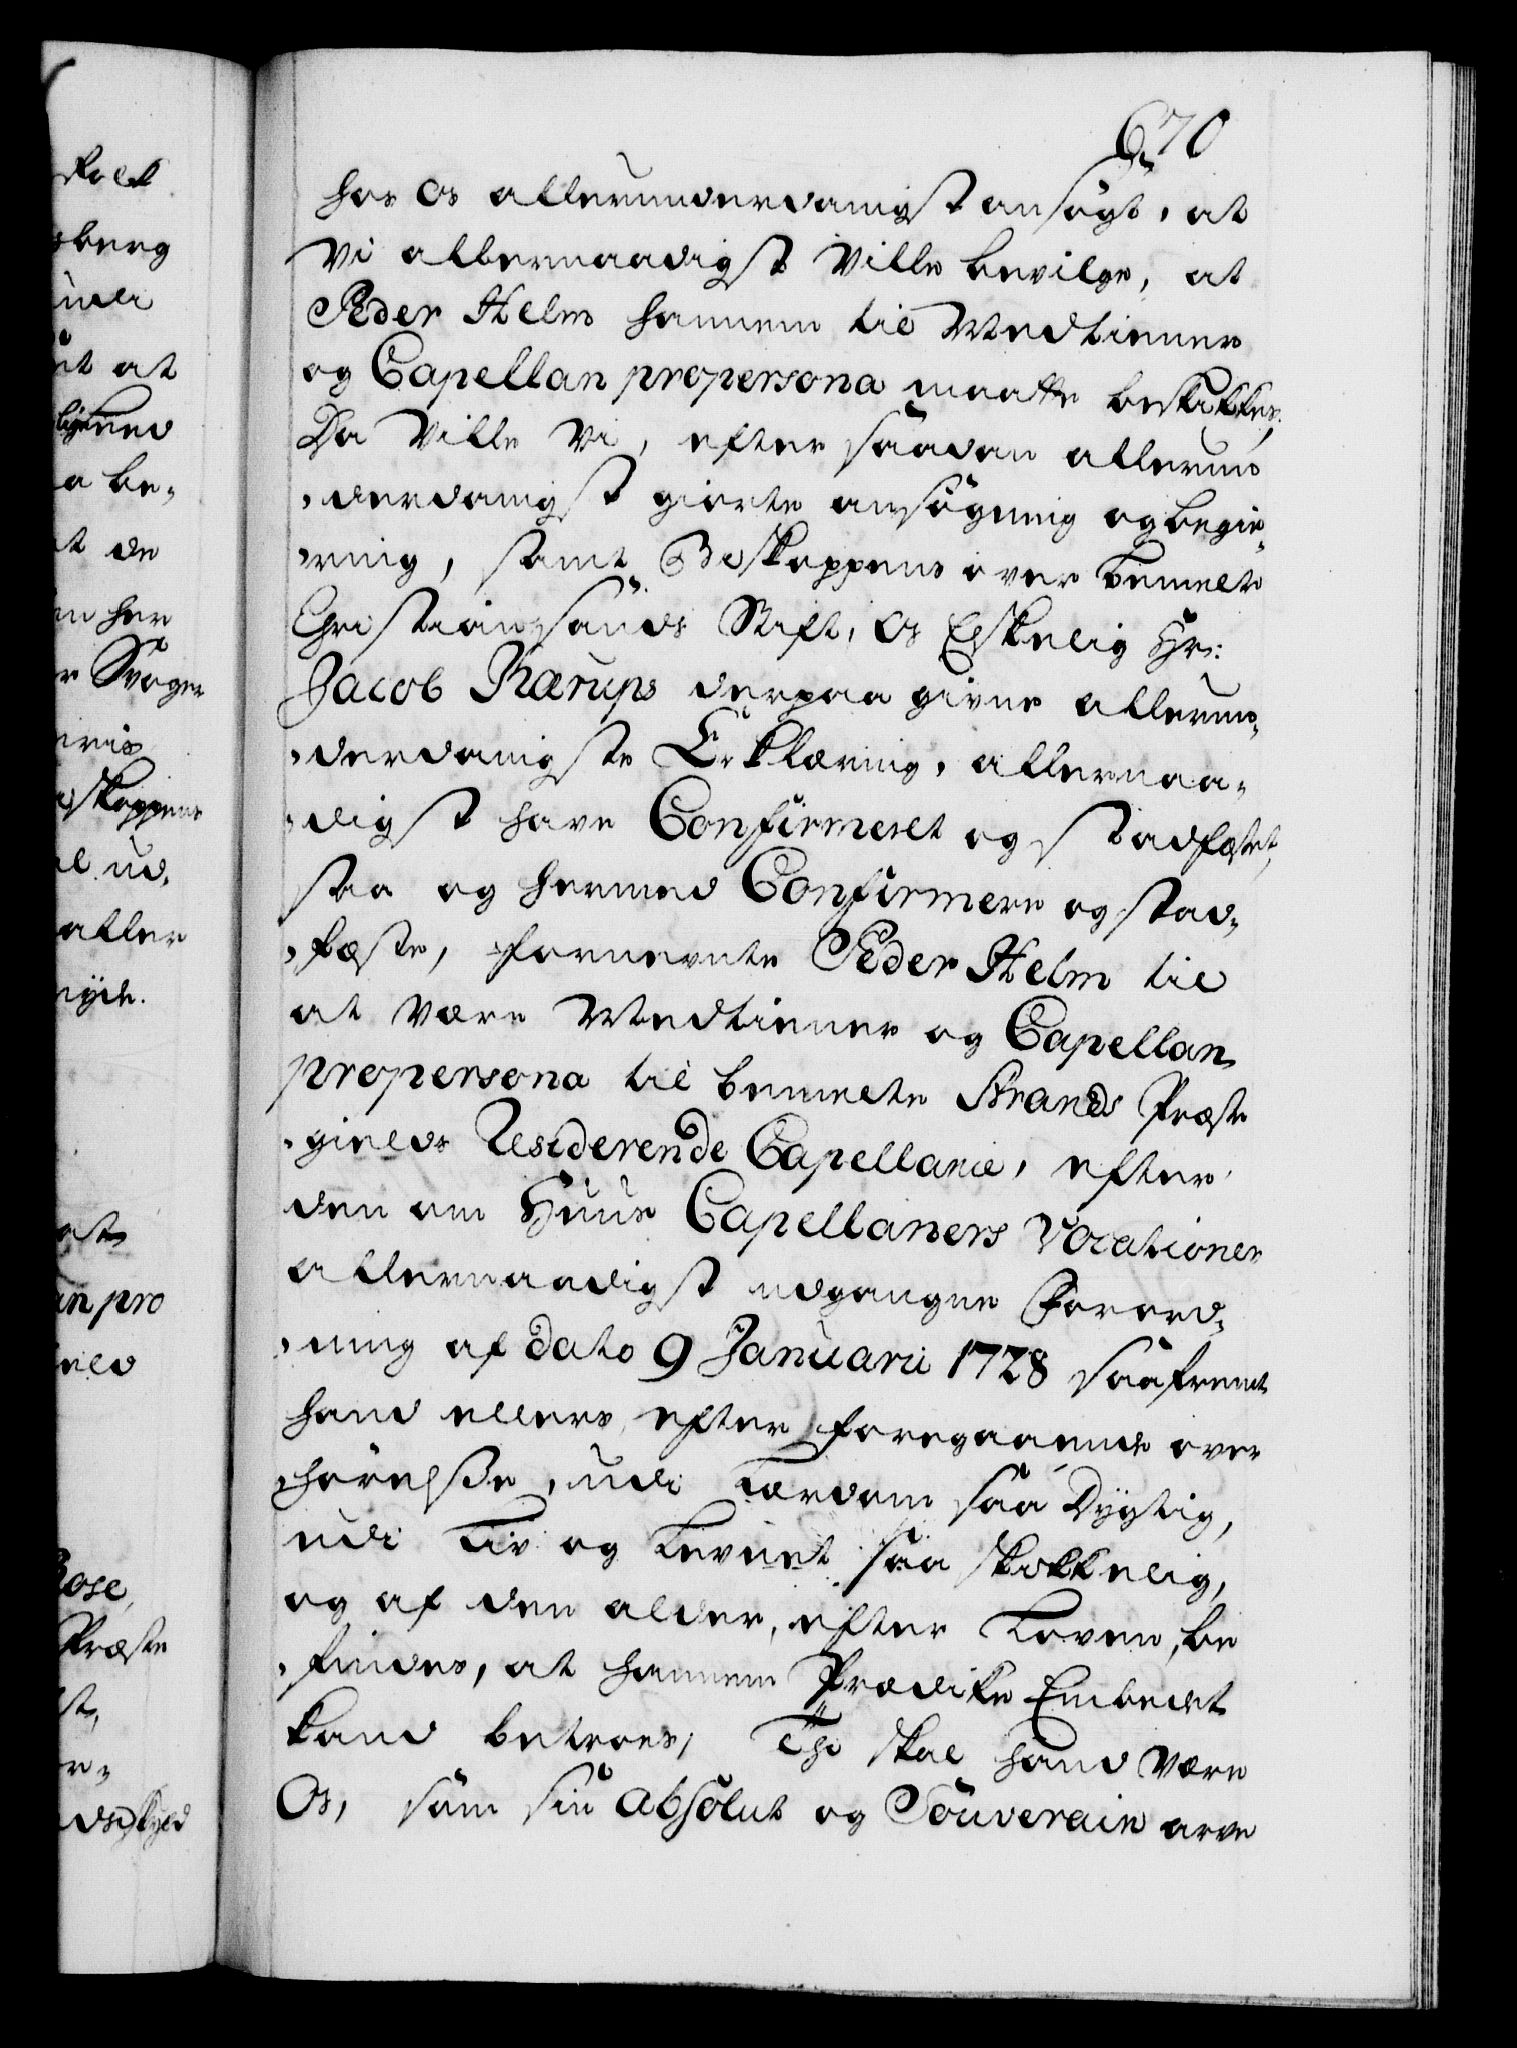 670
hos Os allerunderdanigst ansögt, at
Vi allernaadigst Ville bevilge, at
Peder Helm hannem til Medtiener
og Capellan propersona maatte beskikkes,
Da Ville Vi, efter saadan allerun
-derdanigst giorte ansögning og begie-
-ring, samt Biskoppens over bemelte
Christiansands Stift, Os Elskelig Hr:
Jacob Kærups derpaa givne allerun-
-derdanigste Erklæring, allernaa-
-digst have Confirmeret og stadfæstet,
saa og hermed Confirmere og stad-
-fæste, fornevnte Peder Helm til
at være Medtiener og Capellan
propersona til bemelte Strands Præste
-gields Residerende Capellanie, efter
den om Huus Capellaners Vocationer
allernaadigst udgangne Forord-
-ning af dato 9 Januarii 1728 saafremt
hand ellers, efter foregaaende over
-hörelße, udi Lærdom saa Dygtig,
udi Liv og Levnet saa skikkelig,
og af den alder, efter Loven, be
-findes, at hannem Prædike Embedet
kand betroes; Thi skal hand være
Os, som sin Absolut og Souverain arve
folk
sberg
udi
ut at
ligened
a be-
t de
n her
r Svoger
eris
iskoppens
l ud,
aller
nyde.
an pro
ield
Rose,
Præste
st,
r-